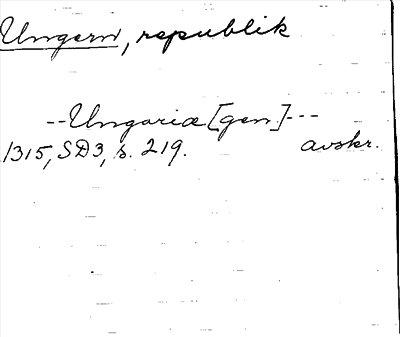 Ungern, republik
--Ungariæ [gen.]---
1315, SD3, s. 219. avskr.